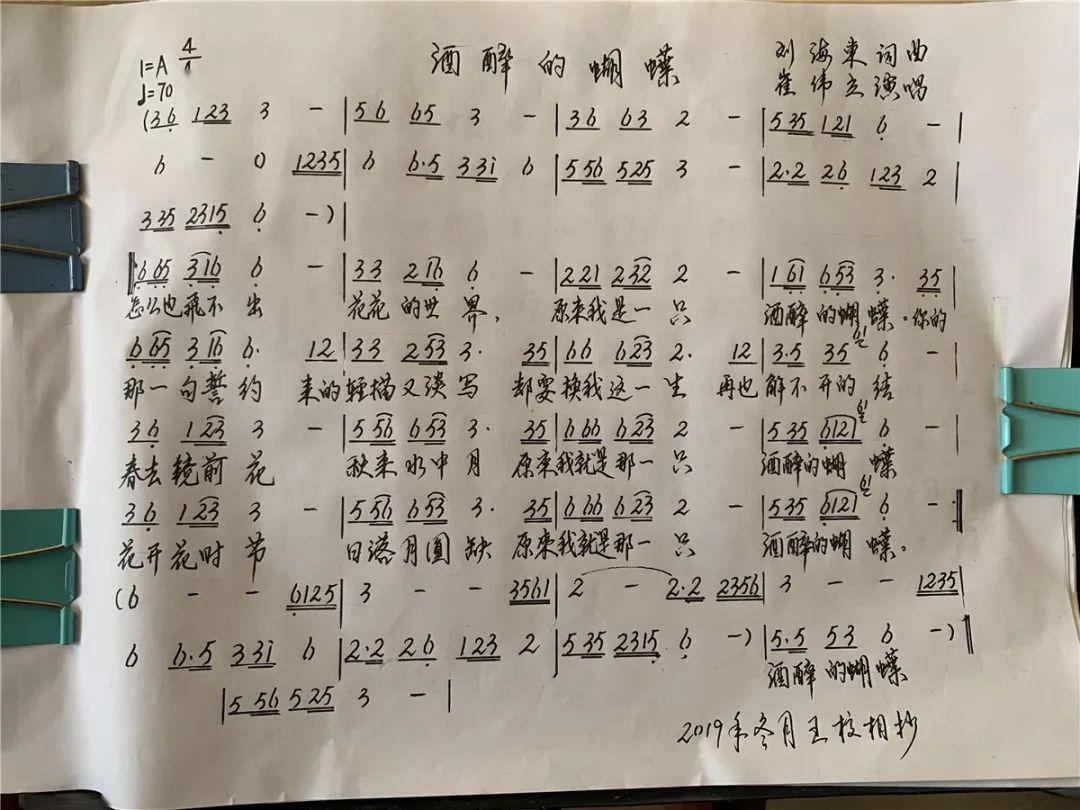 酒醉的蝴蝶
1=A 4/4
♩=70
刘海东词曲
崔伟立演唱
(36 123 3 - |56 65 3 - |36 63 2 - |535 121 6 - |
6 - 0 1235|6 6·5 33i 6 |556 525 3 - |2·2 26 123 2 |
335 2315 6 -)|
‖:665 316 6 - |33 216 6 - |221 232 2 - |161 653 3· 35|
怎么也飛不出 花花的世界、 原来我是一只 酒醉的蝴蝶·你的
665 316 6· 12|33 253 3· 35|66 623 2· 12|3·5 35 6 - |
那一句誓约 来的轻描又淡写 却要换我这一生 再也解不开的结
36 123 3 - |556 653 3· 35|666 623 2 - |535 6121 6 - |
春去镜前花 秋来水中月 原来我就是那一只 酒醉的蝴蝶
36 123 3 - |556 653 3· 35|666 623 2 - |535 6121 6 - :‖
花开花时节 日落月圆缺 原来我就是那一只 酒醉的蝴蝶。
(6 - - 6125|3 - - 3561|2 - 2·2 2356|3 - - 1235|
6 6·5 33i 6 |2·2 26 123 2 |535 2315 6 -)|5·5 53 6 -)‖
酒醉的蝴蝶
|556 525 3 - |
2019年冬月王校相抄